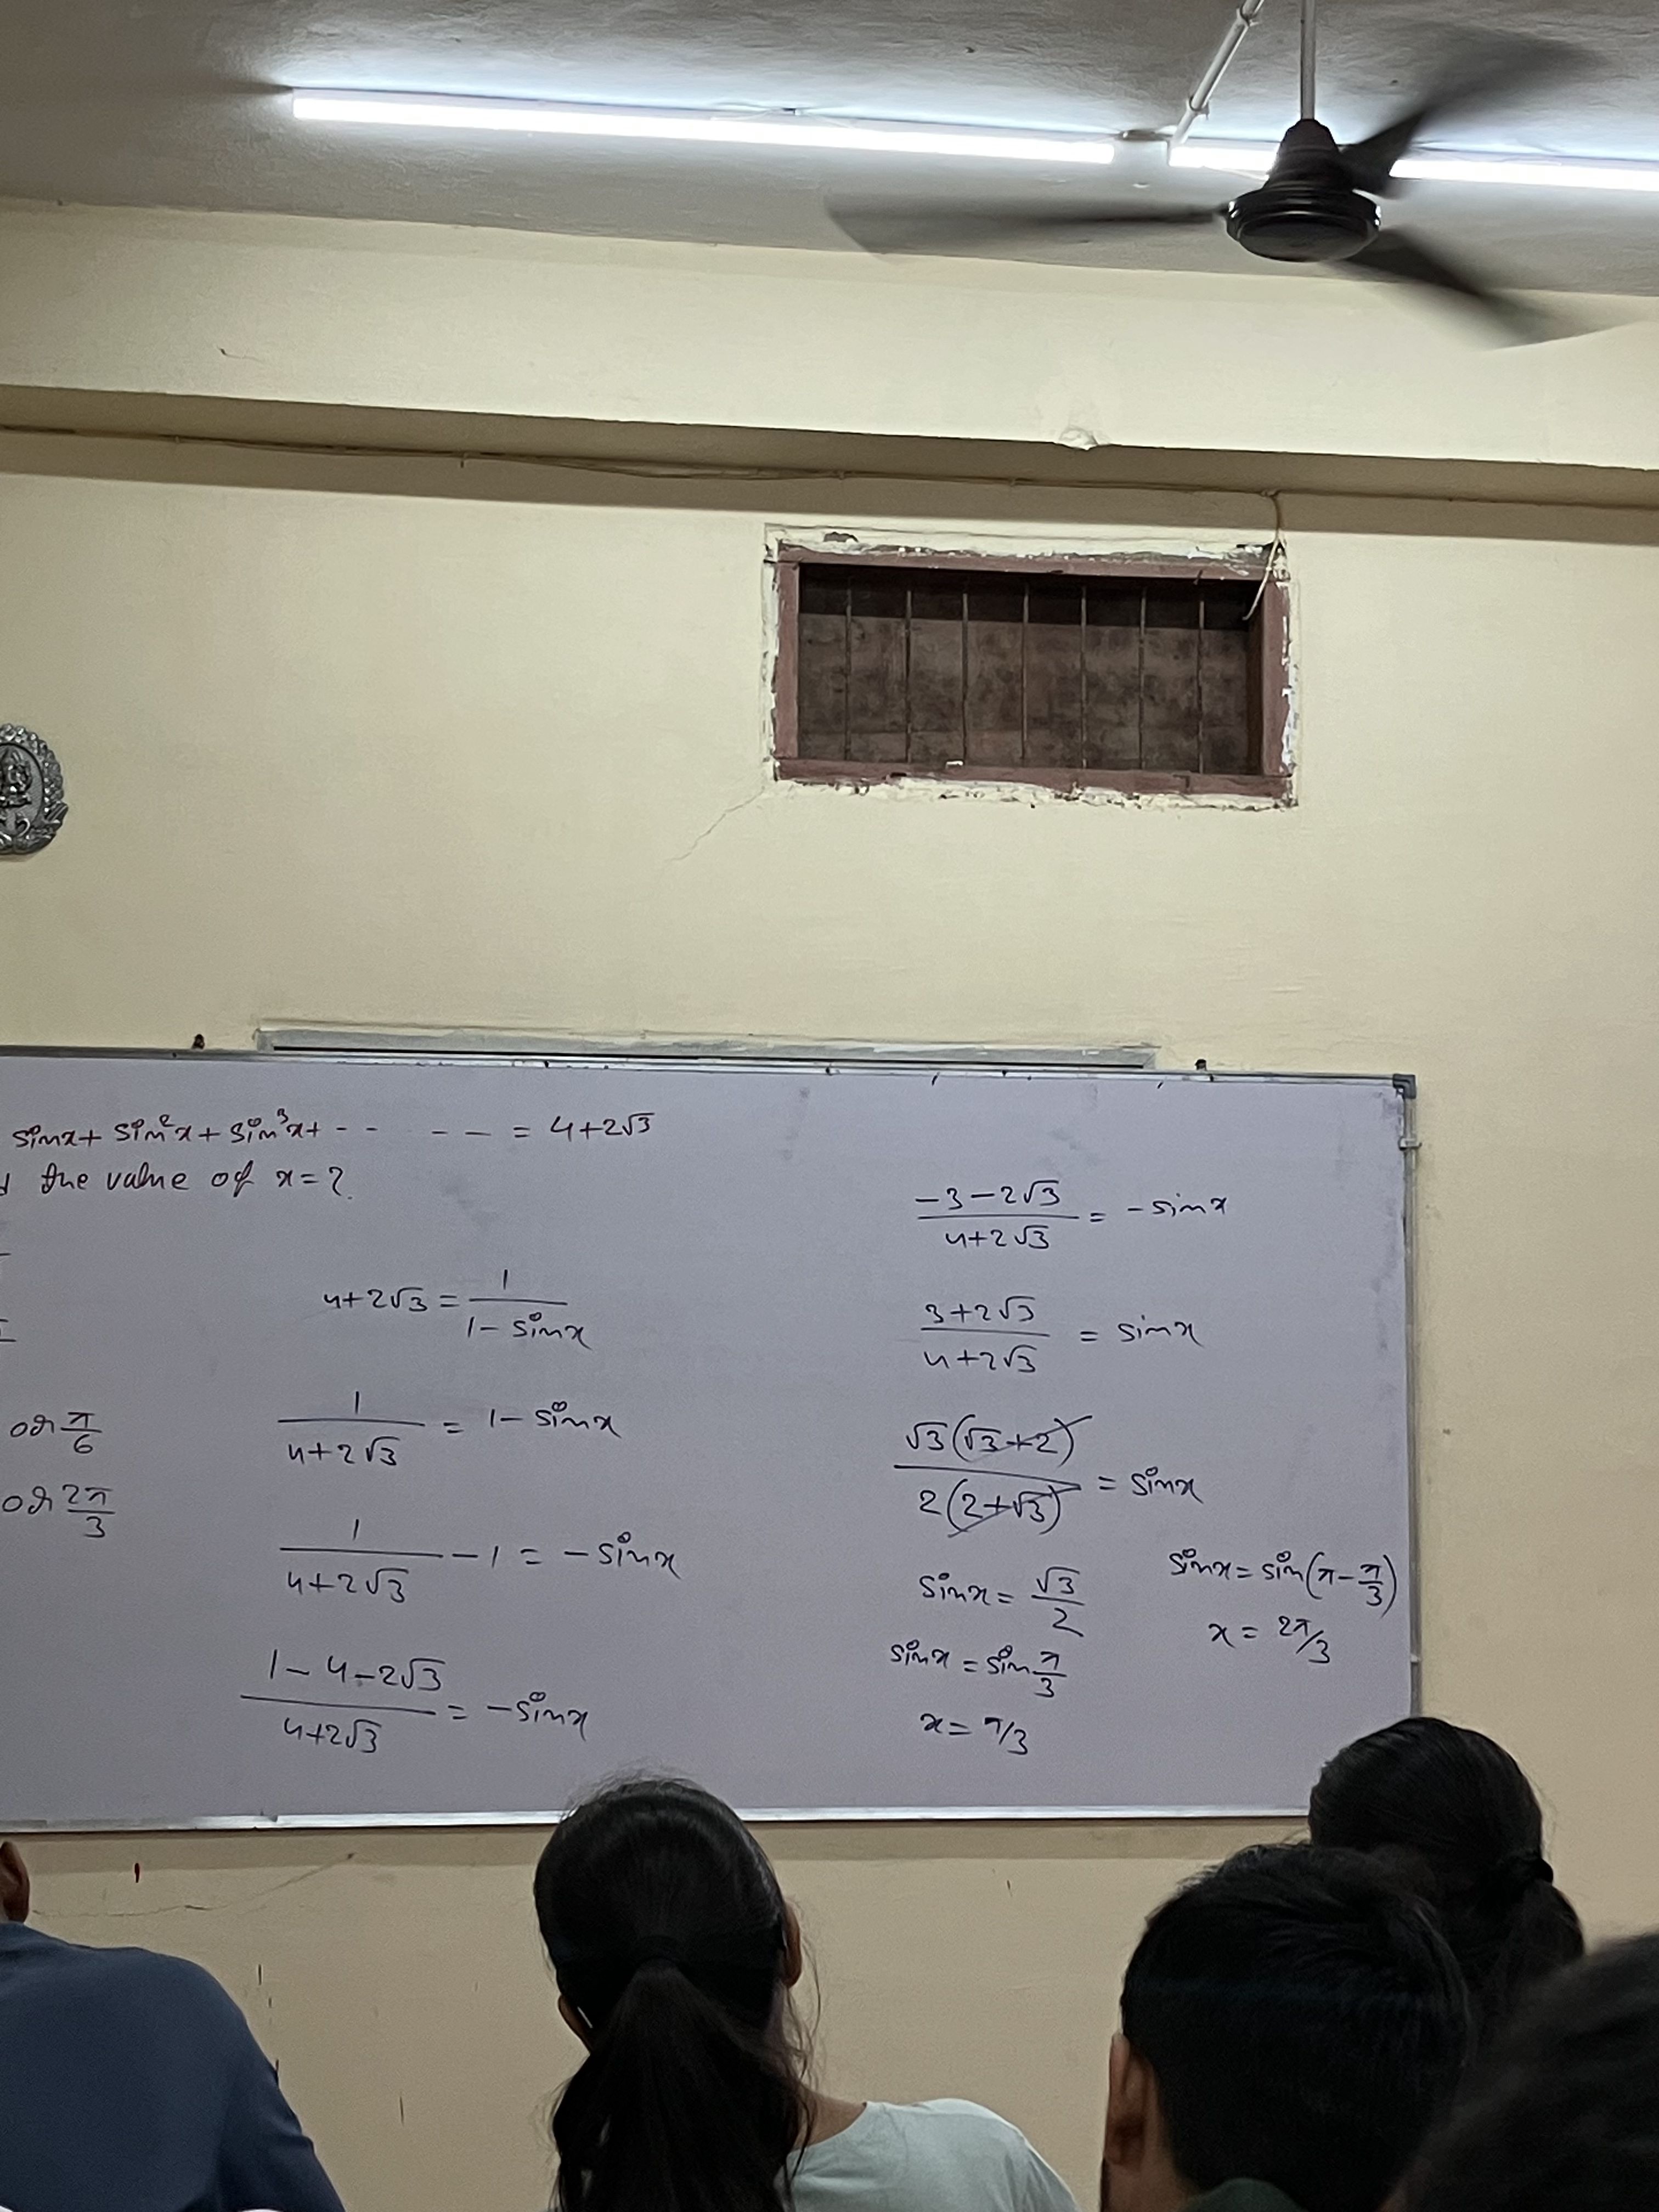 sinx + sin²x + sin³x + - - - - - = 4+2√3
the value of x = ?
or π/6
or 2π/3
4+2√3 = 1/(1 - sinx)
1/(4+2√3) = 1 - sinx
1/(4+2√3) - 1 = - sinx
(1 - 4 - 2√3)/(4+2√3) = - sinx
(-3 - 2√3)/(4+2√3) = - sinx
(3+2√3)/(4+2√3) = sinx
√3(√3+2)/2(2+√3) = sinx
sinx = √3/2
sinx = sin π/3
x = π/3
sinx = sin(π - π/3)
x = 2π/3